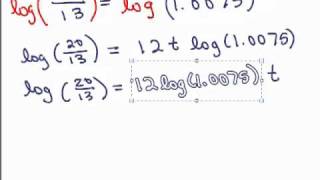 log(/13) = log(1.0075)
log(20/13) = 12 t log(1.0075)
log(20/13) = 12 log(1.0075) t